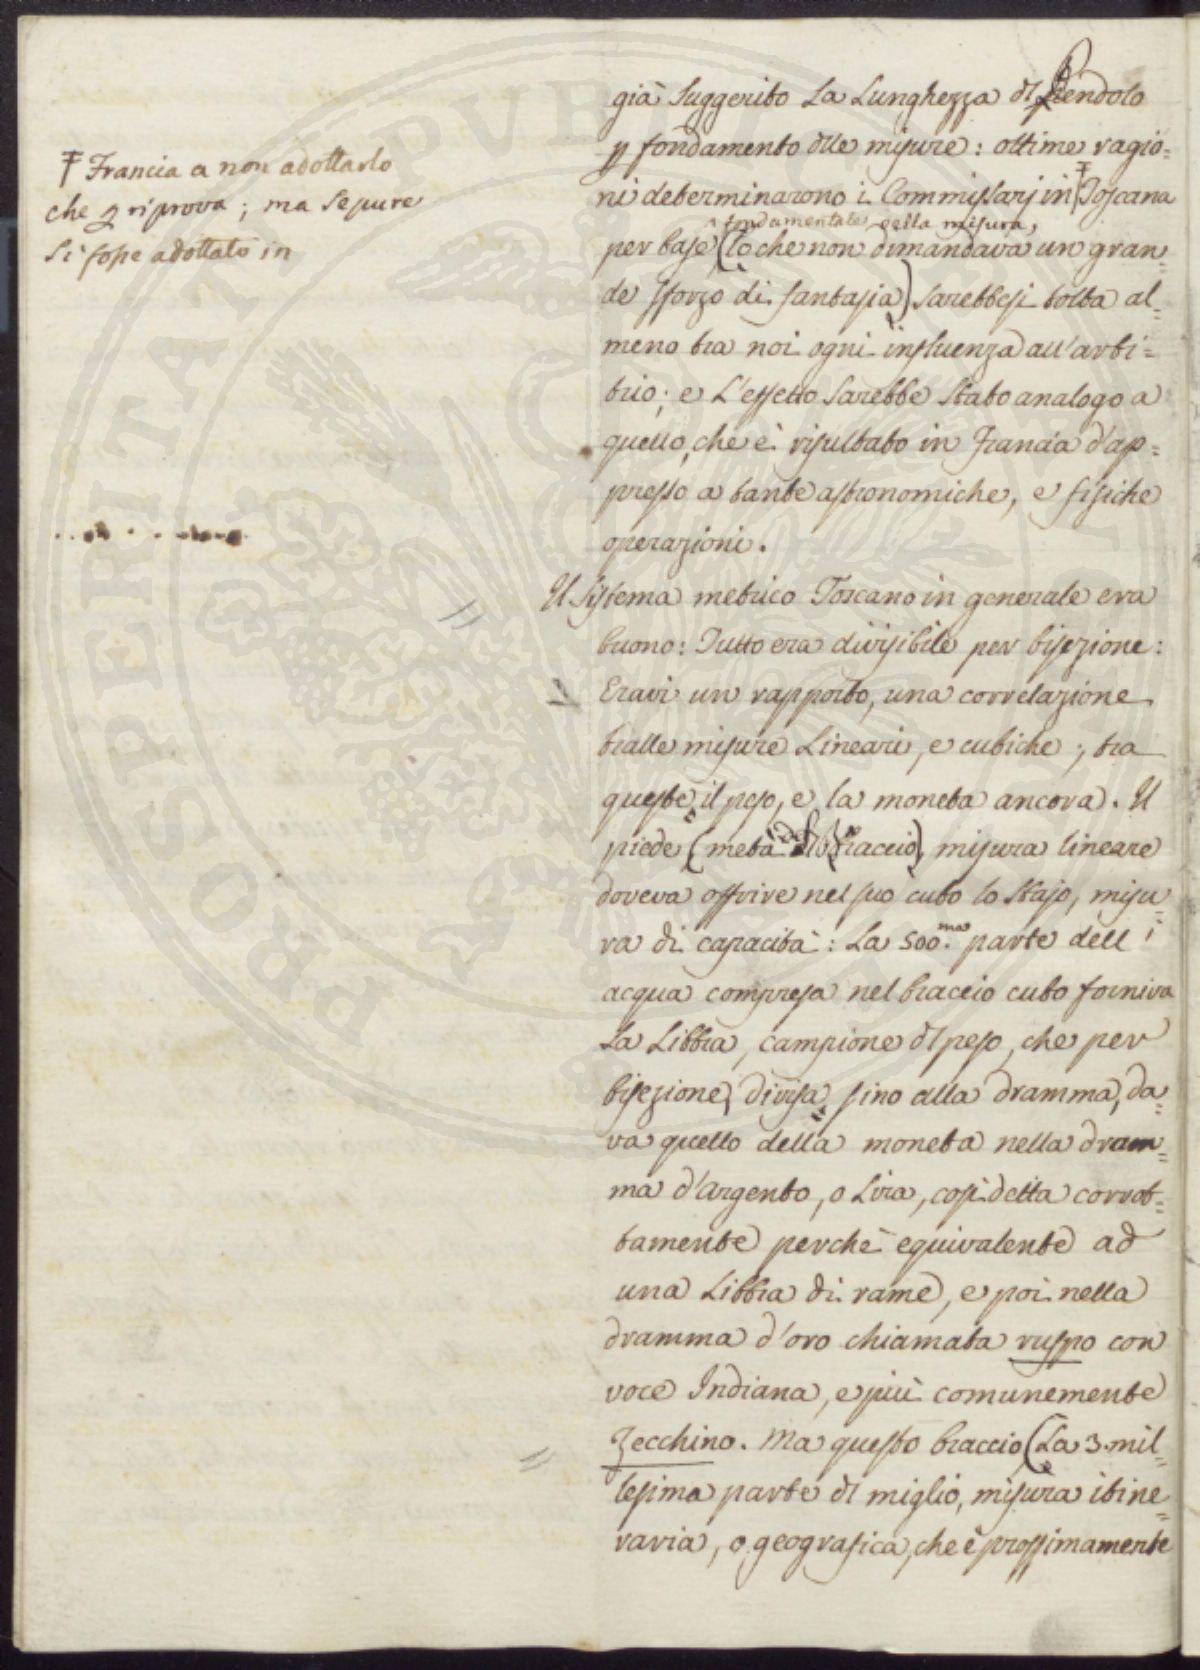 già suggerito la lunghezza dl Pendolo
p fondamento dlle misure: ottime ragio=
ni determinarono i Commissarj in Ŧ Toscana
fondamentale della misura,
per base (lo che non dimandava un gran=
de sforzo di fantasia) sarebbesi tolta al=
meno tra noi ogni influenza all'arbi=
trio; e l'effetto sarebbe stato analogo a
quello, che è risultato in Francia d'ap=
presso a tante astronomiche, e fisiche
operazioni.
Ŧ Francia a non adottarlo
che p riprova; ma se pure
si fosse adottato in
Il Sistema metrico Toscano in generale era
buono: Tutto era divisibile per bisezione:
Eravi un rapporto, una correlazione
tralle misure lineari, e cubiche; tra
queste, il peso, e la moneta ancora. Il
piede (metà del braccio), misura lineare
doveva offrire nel suo cubo lo stajo, misu=
ra di capacità: la 500.ma parte dell'
acqua compresa nel braccio cubo forniva
la Libbra, campione dl peso, che per
bisezione, divisa, fino alla dramma, da=
va quello della moneta nella dram=
ma d'Argento, o Lira, così detta corrot=
tamente perchè equivalente ad
una Libbra di rame, e poi nella
dramma d'oro chiamata ruspo con
voce Indiana, e più comunemente
Zecchino. Ma questo braccio (la 3.mil=
lesima parte dl miglio, misura itine=
raria, o geografica, che è prossimamente
PROSPERITATI PUBLICAE